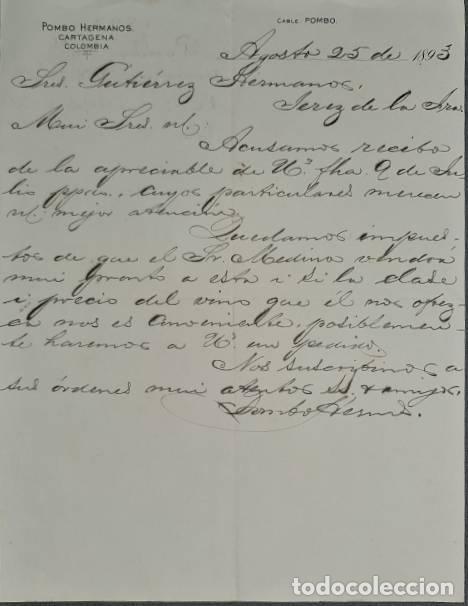 POMBO HERMANOS.
CARTAGENA
COLOMBIA
CABLE. POMBO.
Agosto 25 de 1893
Sres. Gutiérrez Hermanos.
Jerez de la Fra.
Mui Sres. n/.
Acusamos recibo
de la apreciable de Us. fha 9 de Ju-
lio ppdo., cuyos particulares merecen
n/. mejor atención.
Quedamos impues-
tos de que el Sr. Medina vendrá
mui pronto a esta i si la clase
i precio del vino que él nos ofrez-
ca nos es conveniente, posiblemen-
te haremos a Us. un pedido.
Nos suscribimos a
sus órdenes mui atentos ss. & amigos.
Pombo Hermos.
todocoleccion.net